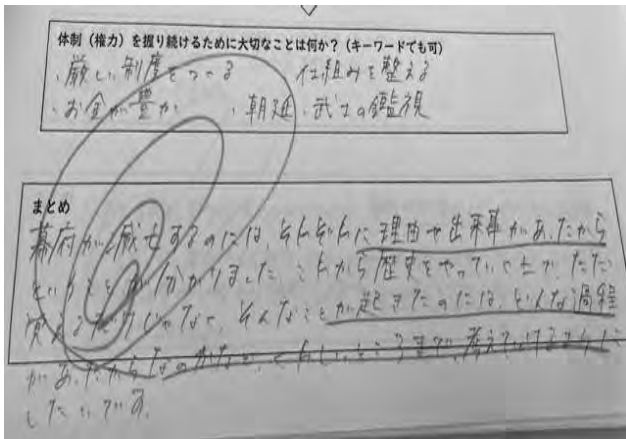 体制(権力)を握り続けるために大切なことは何か?(キーワードでも可)
・厳しい制度をつくる 仕組みを整える
・お金が豊か ・朝廷、武士の鑑視
まとめ
幕府が滅亡するのには、それぞれに理由や出来事があったから
ということが分かりました。これから歴史をやっていく上で、ただ
覚えるだけじゃなくて、そんなことが起きたのには、どんな過程
があったからなのかなど、くわしいところまで、考えていけるように
したいです。